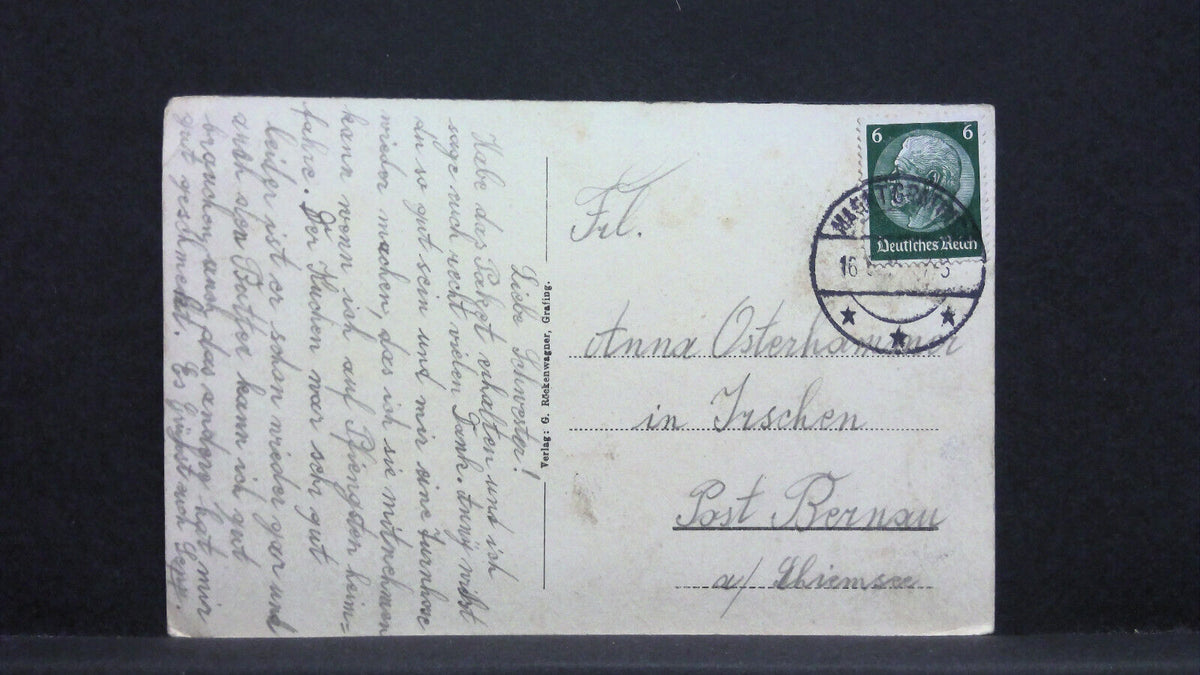 Liebe Schwester!
Habe das Paket erhalten und ich
sage euch recht vielen Dank.
du so gut sein und mir eine Turnhose
wieder machen, das ich sie mitnehmen
kann wenn ich auf Pfingsten heim=
fahre. Der Kuchen war sehr gut
leider ist er schon wieder gar und
auch den Butter kann ich gut
brauchen, auch das andere hat mir
gut geschmeckt. Es grüßt euch Sepp.
Verlag: G. Röckenwagner, Grafing.
Frl.
Anna Osterhammer
in Irschen
Post Bernau
a/ Chiemsee
6 6
Deutsches Reich
MARKT GRAFING
16